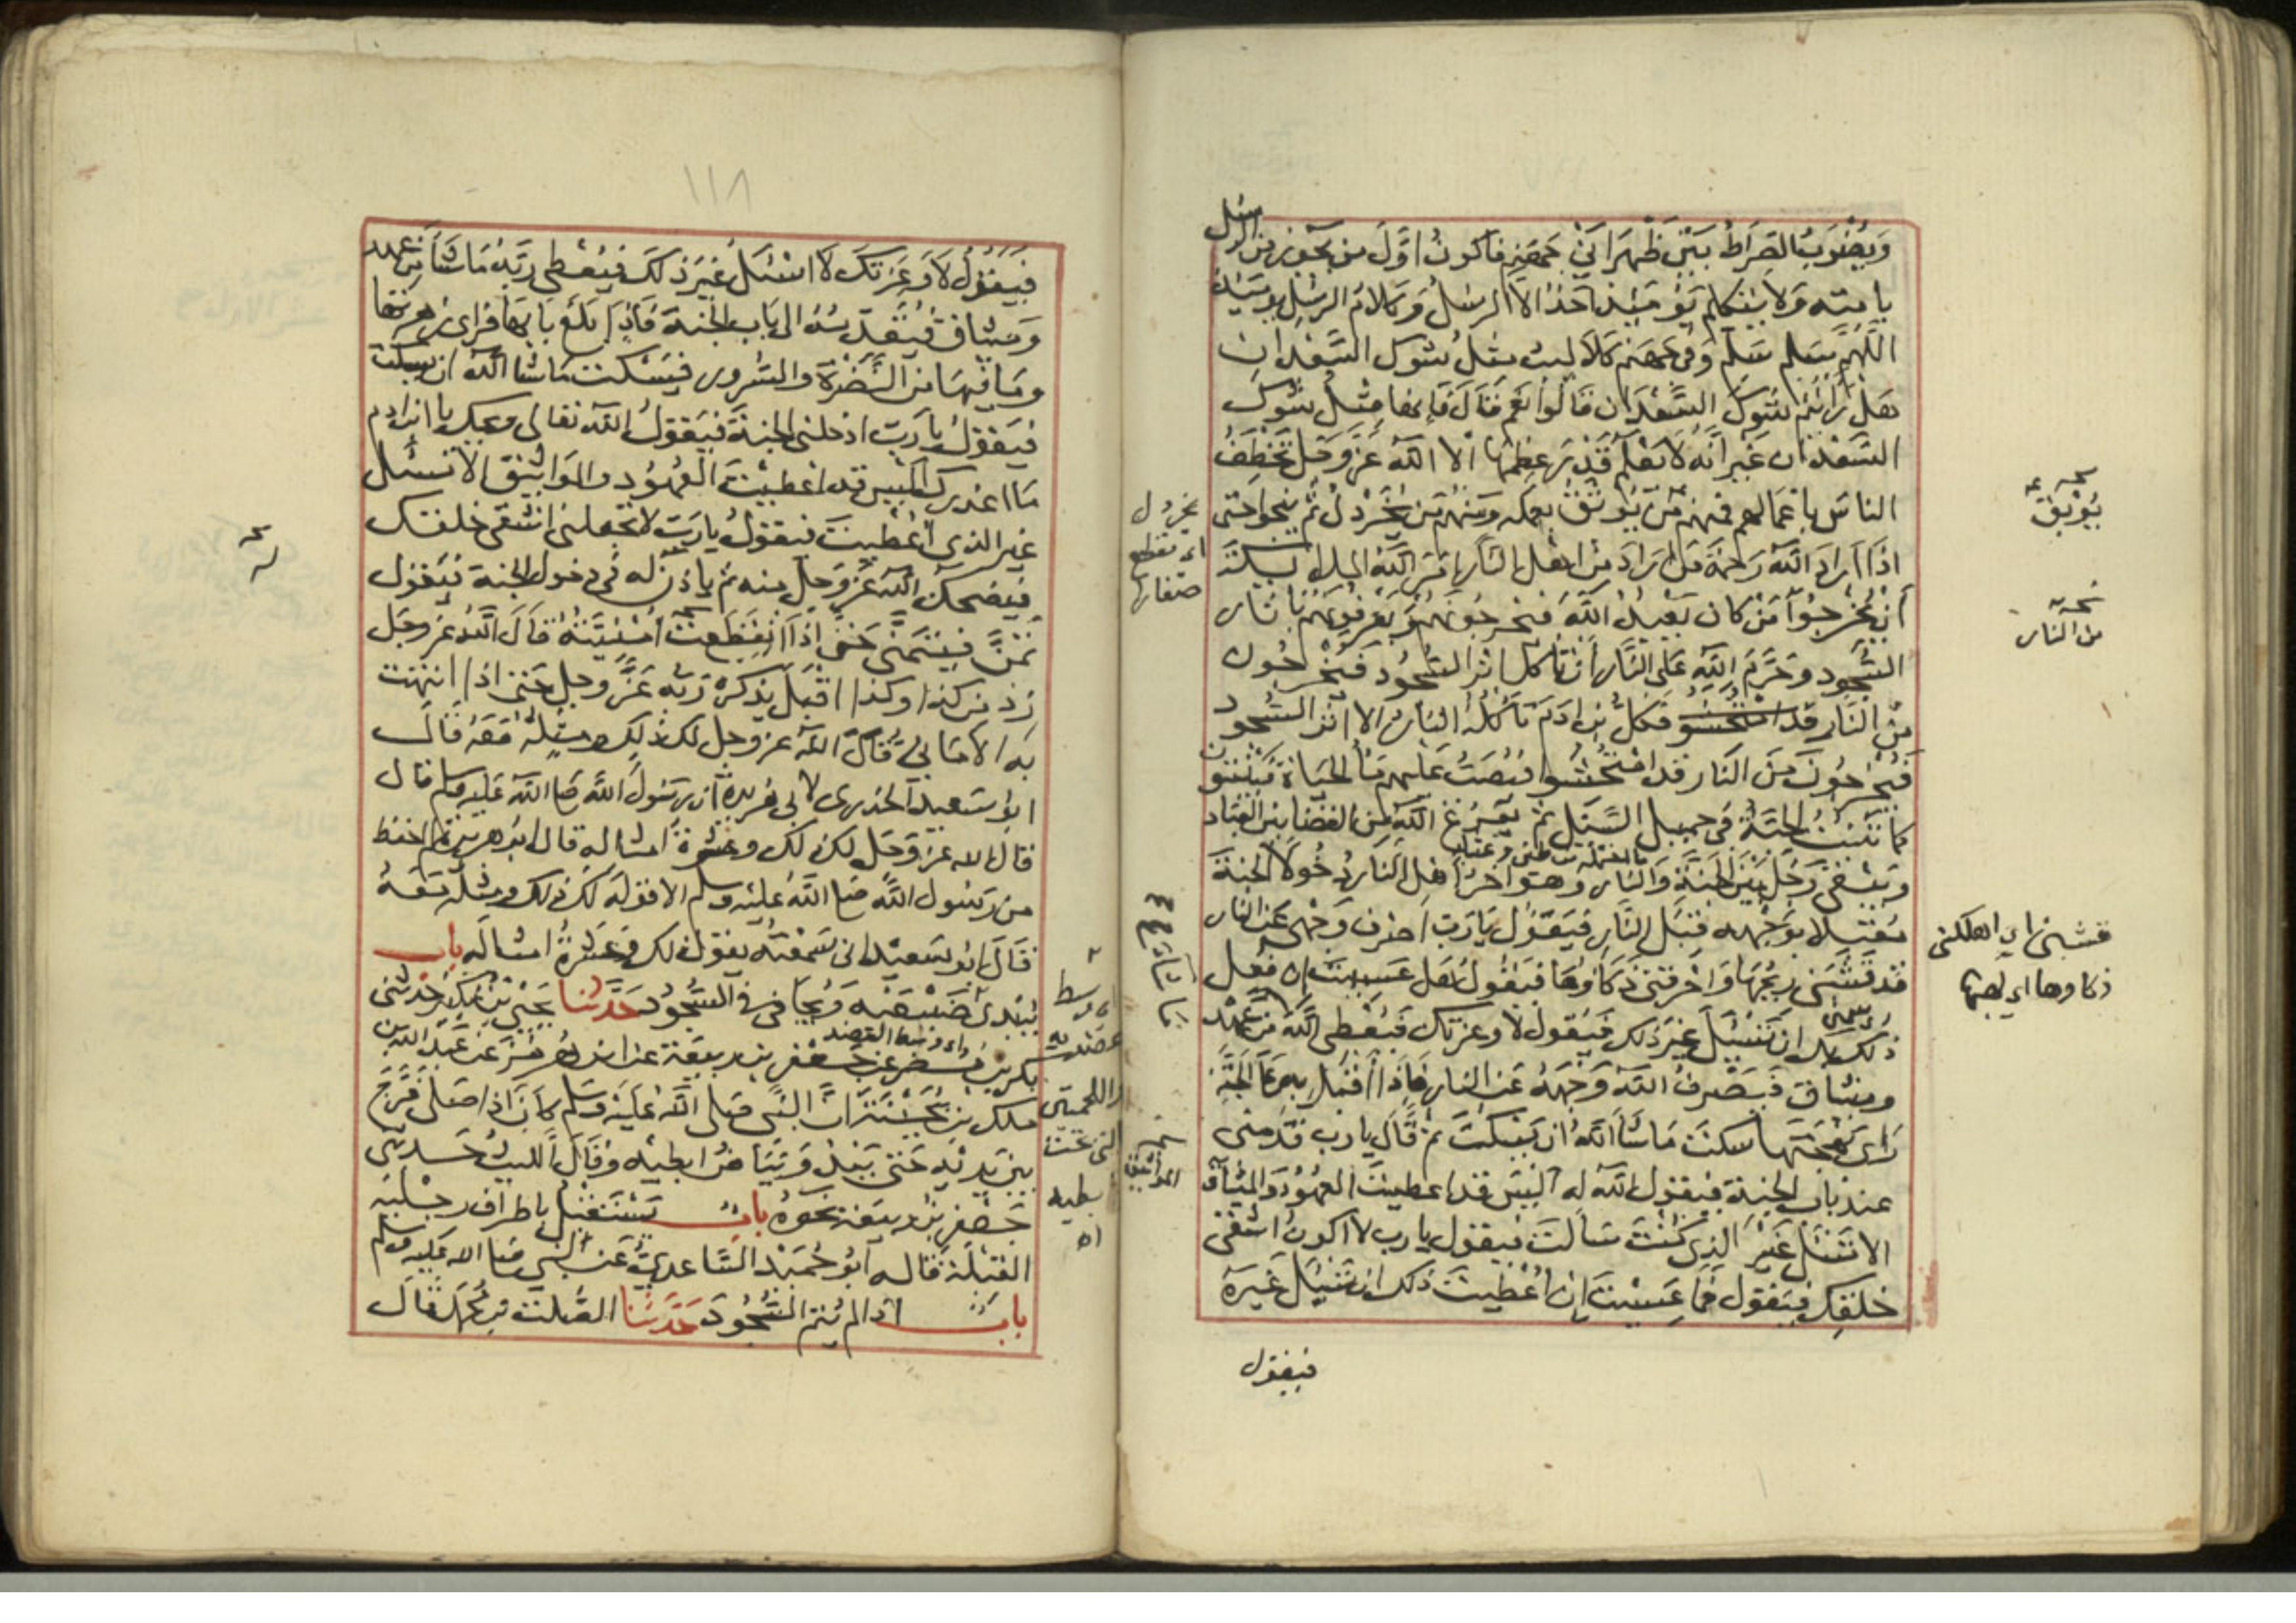 ويضرب الصراط بين ظهراني جهنم فاكون اول من يجوز من الرسل
بامته ولا يتكلم يومئذ احد الا الرسل وكلام الرسل يومئذ
اللهم سلم سلم وفي جهنم كلاليب مثل شوك السعدان
هل رايتم شوك السعدان قالوا نعم قال فانها مثل شوك
السعدان غير انه لا يعلم قدر عظمها الا الله عز وجل تخطف
الناس باعمالهم فمنهم من يوثق بعمله ومنهم من يخردل ثم ينجوا حتى
اذا اراد الله رحمة من اراد من اهل النار امر الله الملائكة
ان يخرجوا من كان يعبد الله فيخرجونهم ويعرفونهم باثار
السجود وحرم الله على النار ان تاكل اثر السجود فيخرجون
من النار فكل ابن ادم تاكله النار الا اثر السجود
فيخرجون من النار قد امتحشوا فيصب عليهم ما الحياة فينبتون
كما تنبت الحبة في حميل السيل ثم يفرغ الله من القضا بين العباد
ويبقى رجل بين الجنة والنار وهو اخر اهل النار دخولا الجنة
مقبلا بوجهه قبل النار فيقول يا رب اصرف وجهي عن النار
قد قشبني ريحها واحرقني ذكاوها فيقول هل عسيت ان فعل
ذلك بك ان تسئل غير ذلك فيقول لا وعزتك فيعطي الله من عهد
وميثاق فيصرف الله وجهه عن النار فاذا اقبل به على الجنة
راى بهجتها سكت ما شا الله ان يسكت ثم قال يا رب قدمني
عند باب الجنة فيقول الله له اليس قد اعطيت العهود والميثاق
الا تسئل غير الذي كنت سالت فيقول يا رب لا اكون اشقى
خلقك فيقول فما عسيت ان اعطيت ذلك ان تسئل غيره
فيقول
يوبق
من النار
قشبني اي اهلكني
ذكاوها اي لهبها
يخردل
اي تقطع
صغارها
المواثيق
١١٨
فيقول لا وعزتك لا اسئل غير ذلك فيعطي ربه ما شا من عهد
وميثاق فيقدمه الى باب الجنة فاذا بلغ بابها فراى زهرتها
وما فيها من النضرة والسرور فيسكت ما شا الله ان يسكت
فيقول يا رب ادخلني الجنة فيقول الله تعالى ويحك يا ابن ادم
ما اغدرك اليس قد اعطيت العهود والمواثيق الا تسئل
غير الذي اعطيت فيقول يا رب لا تجعلني اشقى خلقك
فيضحك الله عز وجل منه ثم ياذن له في دخول الجنة فيقول
تمن فيتمنى حتى اذا انقطعت امنيته قال الله عز وجل
زد من كذا وكذا اقبل يذكره ربه عز وجل حتى اذا انتهت
به الاماني قال الله عز وجل لك ذلك ومثله معه قال
ابو سعيد الخدري لابي هريرة ان رسول الله صلى الله عليه وسلم قال
قال الله عز وجل لك ذلك وعشرة امثاله قال ابو هريرة لم احفظ
من رسول الله صلى الله عليه وسلم الا قوله لك ذلك ومثله معه
قال ابو سعيد اني سمعته يقول ذلك لك وعشرة امثاله باب
يبدي ضبعيه ويجافي في السجود حدثنا يحيى بن بكير حدثني
بكر بن مضر عن جعفر بن ربيعة عن ابن هرمز عن عبد الله بن
ملك بن بحينة ان النبي صلى الله عليه وسلم كان اذا صلى فرج
بين يديه حتى يبدو بياض ابطيه وقال الليث حدثني
جعفر بن ربيعة نحوه باب يستقبل باطراف رجليه
القبلة قاله ابو حميد الساعدي عن النبي صلى الله عليه وسلم
باب اذا لم يتم السجود حدثنا الصلت بن محمد قال
وسط
عضديه
اللحمتين
التي تحت
ابطيه
اه